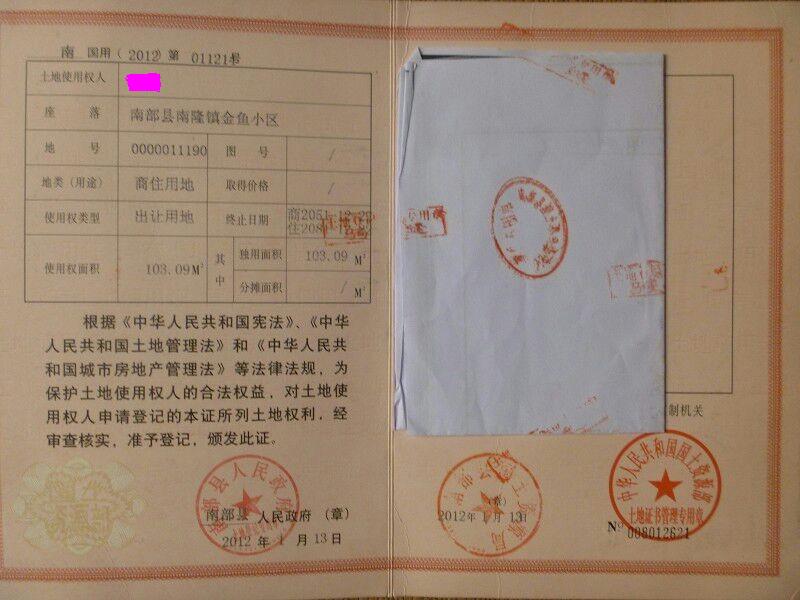 南 国用（2012）第 01121号
土地使用权人
座 落 南部县南隆镇金鱼小区
地 号 0000011190 图 号 /
地类（用途） 商住用地 取得价格 /
使用权类型 出让用地 终止日期 商2051-12-22
使用权面积 103.09M² 其中 独用面积 103.09 M²
分摊面积 / M²
根据《中华人民共和国宪法》、《中华
人民共和国土地管理法》和《中华人民共
和国城市房地产管理法》等法律法规，为
保护土地使用权人的合法权益，对土地使
用权人申请登记的本证所列土地权利，经
审查核实，准予登记，颁发此证。
南部县人民政府
南部县 人民政府 （章）
2012 年 1 月 13日
（章）
2012年 1 月 13日
制机关
中华人民共和国国土资源部
土地证书管理专用章
Nº 008012621